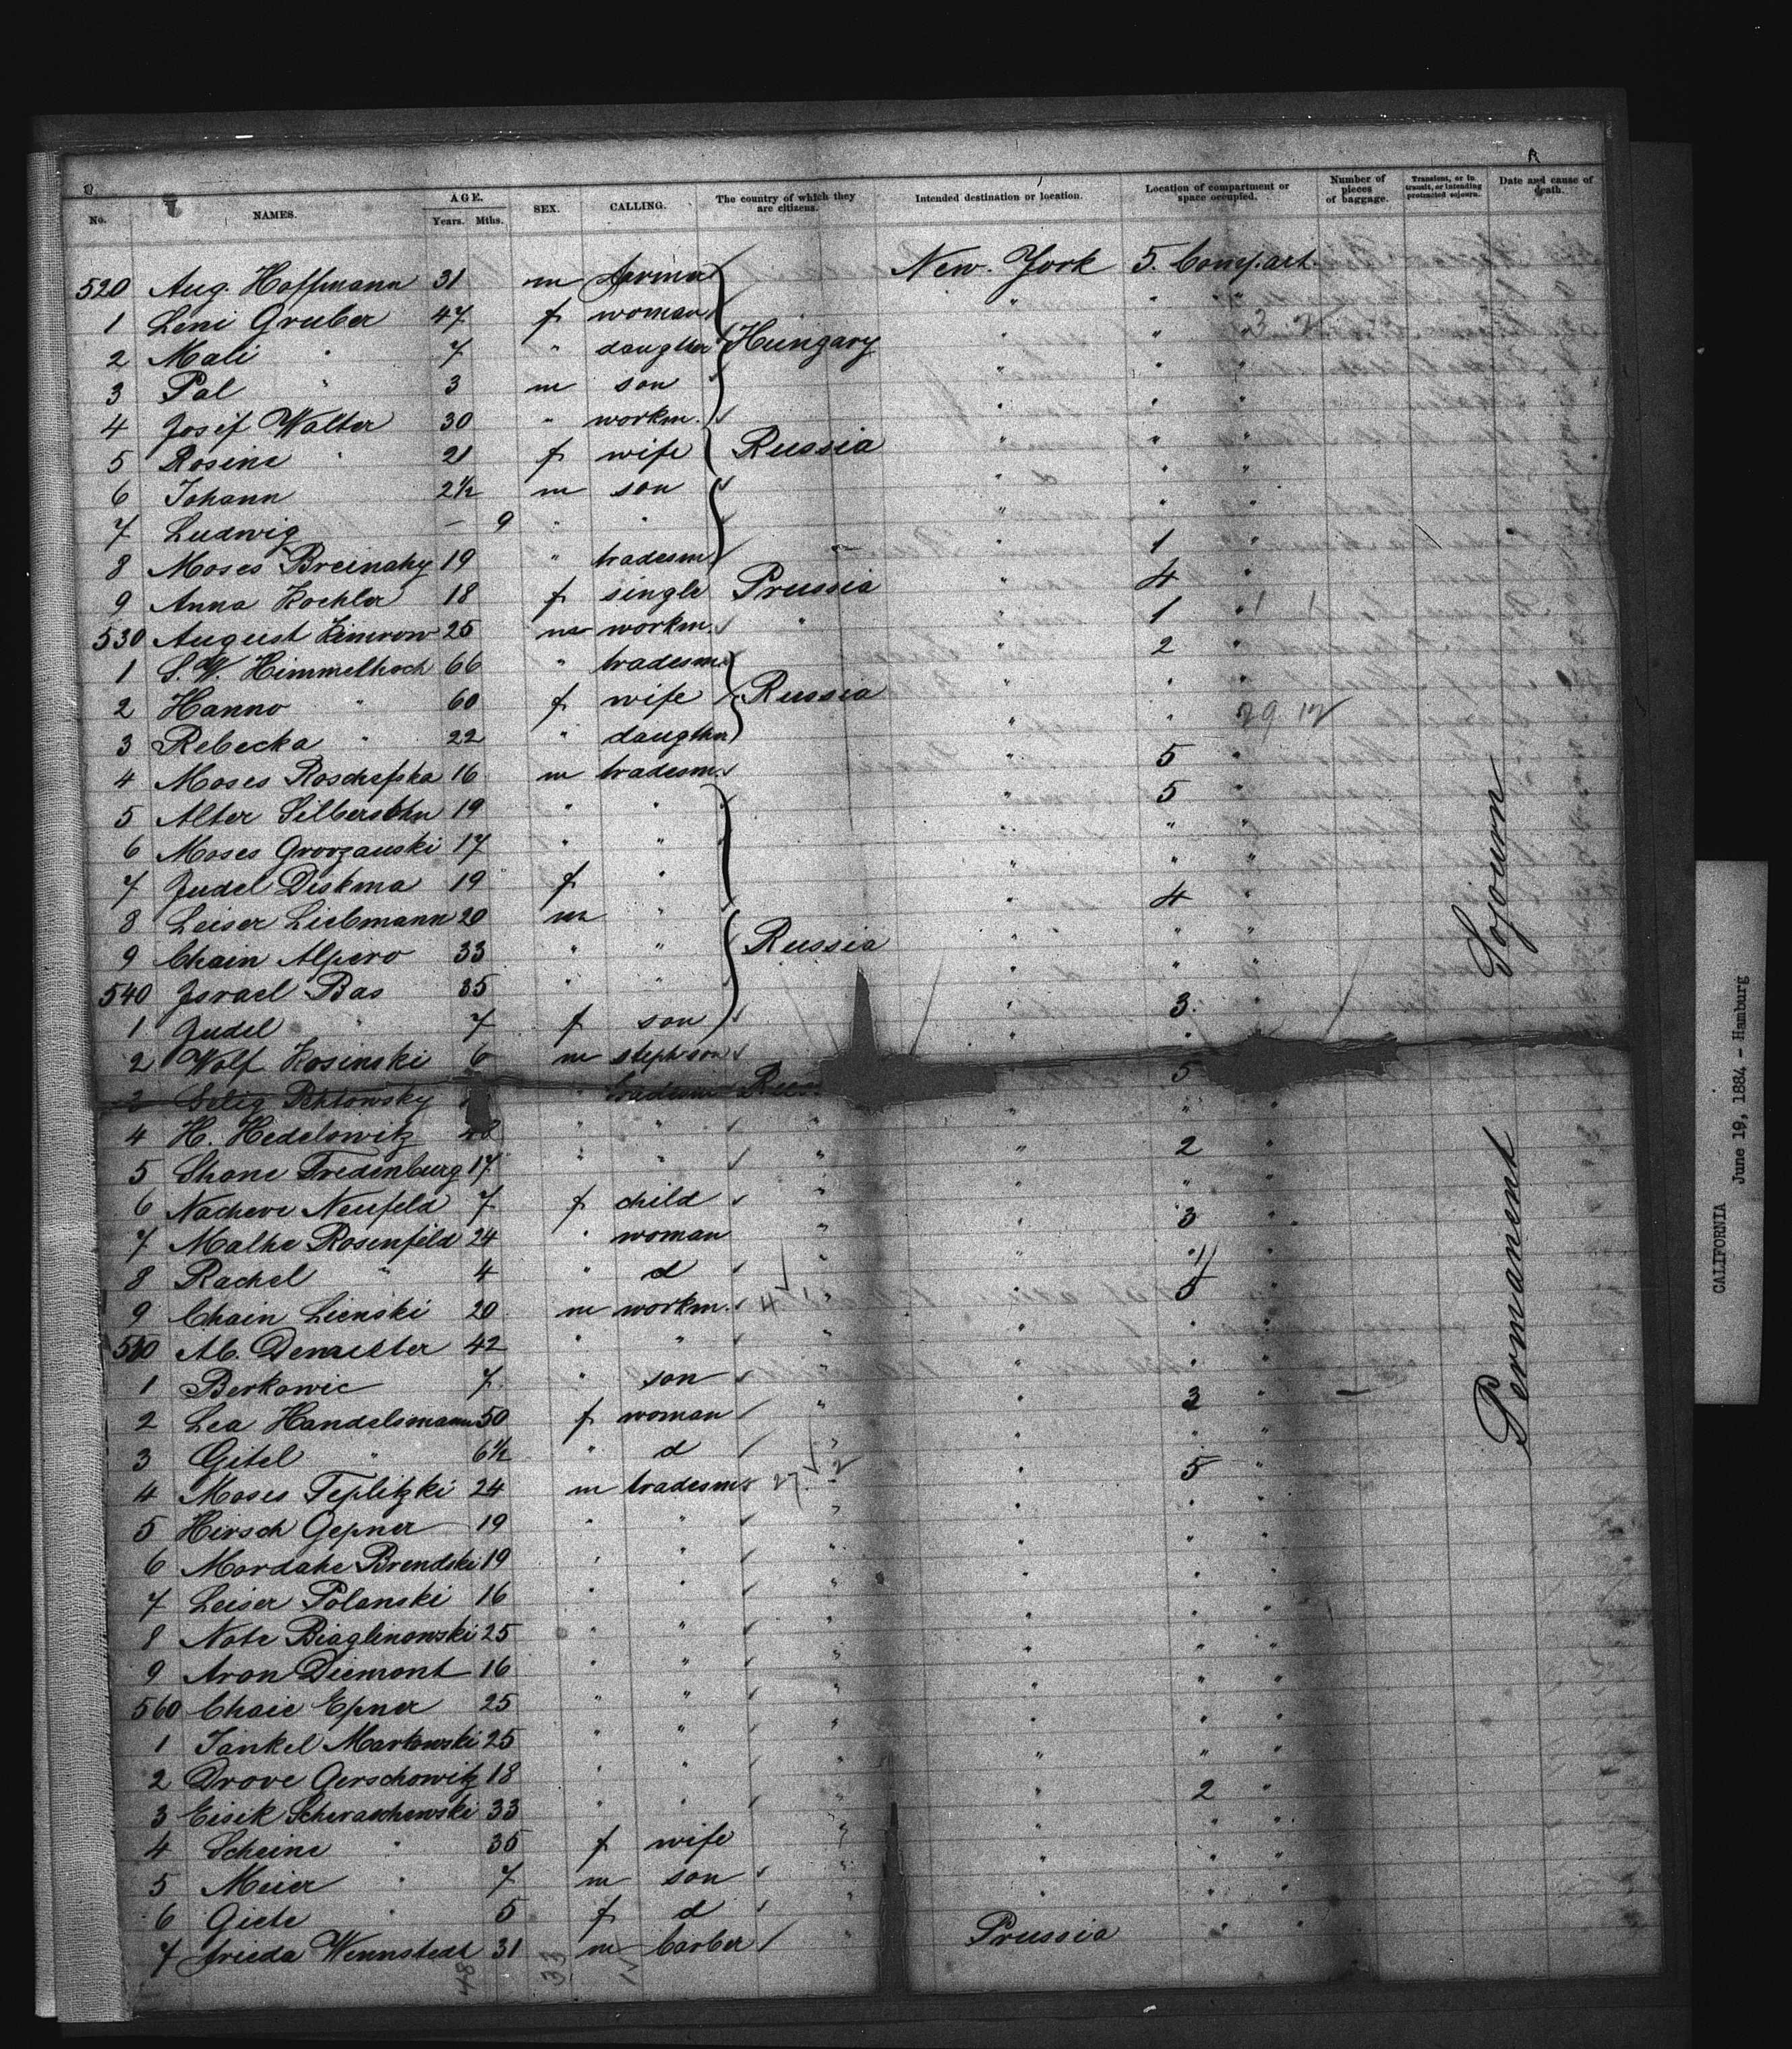 No. NAMES. AGE. Years. Mths. SEX. CALLING. The country of which they are citizens. Intended destination or location. Location of compartment or space occupied. Number of pieces of baggage. Transient, or in transit, or intending protracted sojourn. Date and cause of death.
520 Aug. Hoffmann 31 m farmer New. York 5. Compart.
1 Leni Gruber 47 f woman " " "
2 Mali " 7 " daugther Hungary " " "
3 Pal " 3 m son " " "
4 Josef Walter 30 " workm. " " "
5 Rosine " 21 f wife Russia " " "
6 Johann 2½ m son " " "
7 Ludwig – 9 " " " " "
8 Moses Breinahy 19 " tradesm. " 1 "
9 Anna Kochler 18 f single Prussia " 4 "
530 August Zimrow 25 m workm. " " 1 "
1 S. W. Himmelhoch 66 " tradesm. " 2 "
2 Hanno " 60 f wife Russia " " "
3 Rebecka " 22 " daugther " " 29 12
4 Moses Roschefska 16 m tradesm. " 5 "
5 Alter Silbersohn 19 " " " 5 "
6 Moses Grorzauski 17 " " " " "
7 Judel Diskma 19 f " " " "
8 Leiser Liebmann 20 m " " 4 "
9 Chain Alpero 33 " " Russia " " "
540 Israel Bas 35 " " " " "
1 Judel " 7 f son " 3. "
2 Wolf Kosinski 6 m stephson " "
3 Selig " tradesm Russ 5
4 H. Hedelowitz " " " " " "
5 Shone Fredenburg 17 " " " " 2 "
6 Nachere Neufeld 7 f child " " " "
7 Malke Rosenfeld 24 " woman " " 3 "
8 Rachel " 4 " d " " "
9 Chain Lienski 20 m workm. " " 5 "
550 Ab. Demetter 42 " " " " " "
1 Berkowic 7 " son " " " "
2 Lea Handelsmann 50 f woman " " 3 "
3 Gitel " 6½ " d " " " "
4 Moses Teplitzki 24 m tradesm. " 5 "
5 Hirsch Gepner 19 " " " " " "
6 Mordahe Brendski 19 " " " " " "
7 Leiser Polanski 16 " " " " " "
8 Note Biaglinowski 25 " " " " " "
9 Aron Diemont 16 " " " " " "
560 Chaie Epner 25 " " " " " "
1 Jankel Markowski 25 " " " " " "
2 Drove Gerschowitz 18 " " " " " "
3 Eisik Scheraschewski 33 " " " " 2 "
4 Scheine " 35 f wife " " " "
5 Meier " 7 m son " " " "
6 Giete " 5 f d " " " "
7 Frieda Wennstedt 31 m barber " Prussia " "
48 33
Sojourn
Permanent
CALIFORNIA
June 19, 1884 - Hamburg